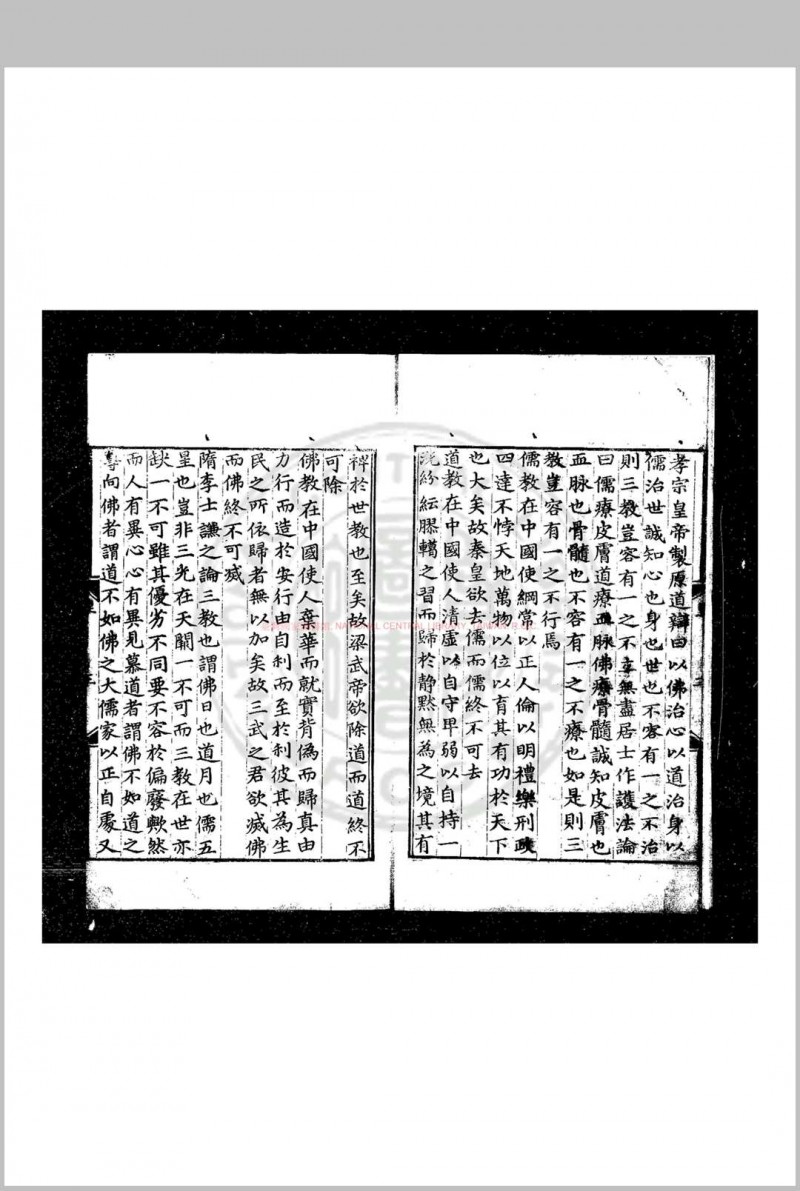 孝宗皇帝製原道辯曰以佛治心以道治身以
儒治世誠知心也身也世也不容有一之不治
則三教豈容有一之不立無盡居士作護法論
曰儒療皮膚道療血脉佛療骨髓誠知皮膚也
血脉也骨髓也不容有一之不療也如是則三
教豈容有一之不行焉
儒教在中國使綱常以正人倫以明禮樂刑政
四達不悖天地萬物以位以育其有功於天下
也大矣故秦皇欲去儒而儒終不可去
道教在中國使人清虛以自守卑弱以自持一
洗紛紜膠轕之習而歸於靜默無為之境其有
裨於世教也至矣故梁武帝欲除道而道終不
可除
佛教在中國使人棄華而就實背偽而歸真由
力行而造於安行由自利而至於利彼其為生
民之所依歸者無以加矣故三武之君欲滅佛
而佛終不可滅
隋李士謙之論三教也謂佛日也道月也儒五
星也豈非三光在天闕一不可而三教在世亦
缺一不可雖其優劣不同要不容於偏廢歟然
而人有異心心有異見慕道者謂佛不如道之
尊向佛者謂道不如佛之大儒家以正自處又
NATIONAL CENTRAL LIBRARY